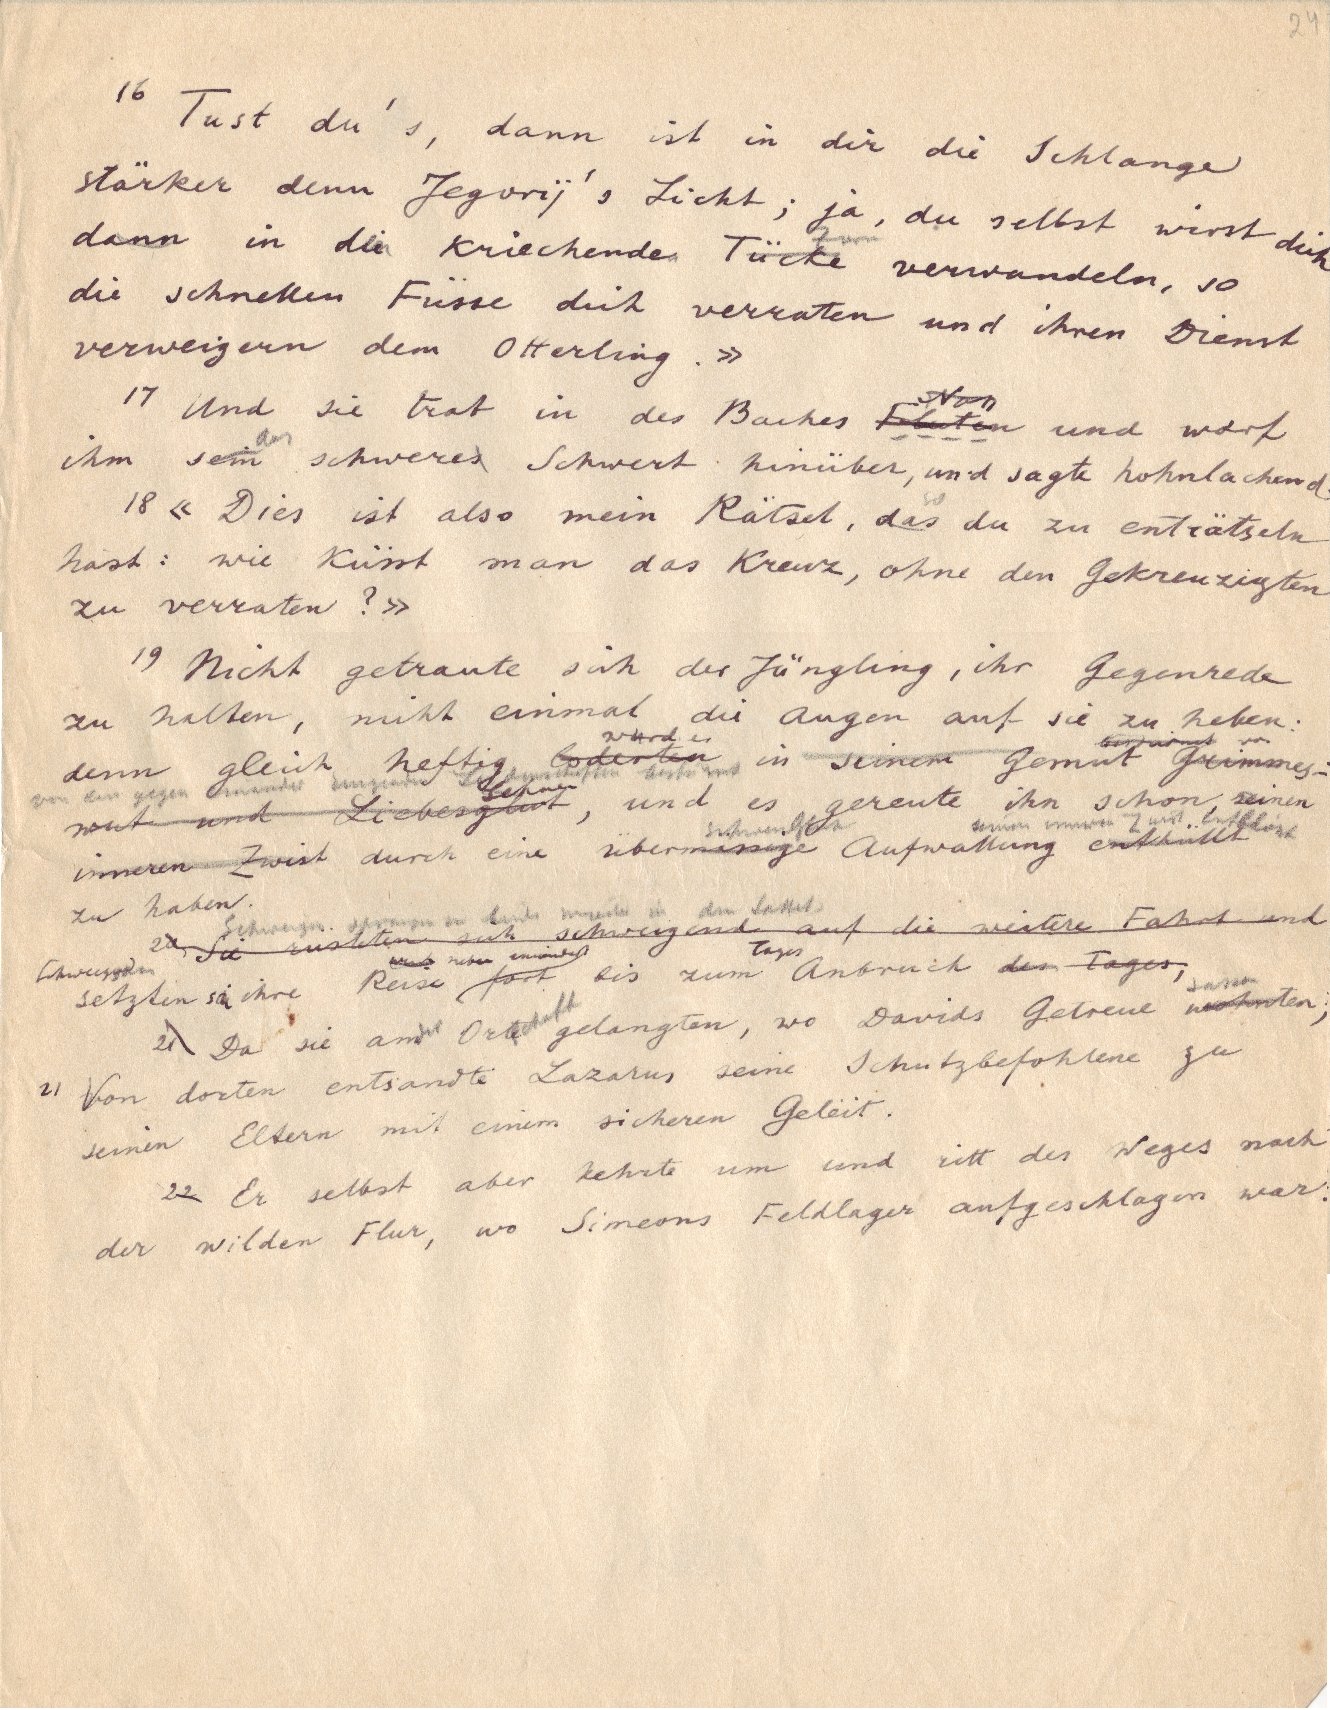 24
16 Tust du's, dann ist in dir die Schlange
stärker denn Jegorij's Licht; ja, du selbst wirst dich
dann in die kriechende Tücke verwandeln, so
die schnellen Füsse dich verraten und ihren Dienst
verweigern dem Otterling.»
17 Und sie trat in des Baches Fluten und warf
der
ihm sein schweres Schwert hinüber, und sagte hohnlachend:
so
18 « Dies ist also mein Rätsel, das du zu enträtseln
hast: wie küsst man das Kreuz, ohne den Gekreuzigten
zu verraten?»
19 Nicht getraute sich der Jüngling, ihr Gegenrede
zu halten, nicht einmal die Augen auf sie zu heben:
wurd es
denn gleich heftig loderten in seinem Gemüt Grimmes-
von den gegen einander ringenden Leidenschaften bestürmt
Sehnen
wut und Liebesglut, und es gereute ihn schon, seinen
seinen inneren Zwist entblösst
inneren Zwist durch eine übermässige Aufwallung enthüllt
zu haben.
Schweigen sprangen sie beide in den Sattel
20 Sie rüsteten sich schweigend auf die weitere Fahrt und
Schweigend neben einander Tages
setzten sie ihre Reise fort bis zum Anbruch des Tages,
sassen
21 Da sie am Orte gelangten, wo Davids Getreue wohnten;
21 Von dorten entsandte Lazarus seine Schutzbefohlene zu
seinen Eltern mit einem sicheren Geleit.
22 Er selbst aber kehrte um und ritt des Weges nach
der wilden Flur, wo Simeons Feldlager aufgeschlagen war.